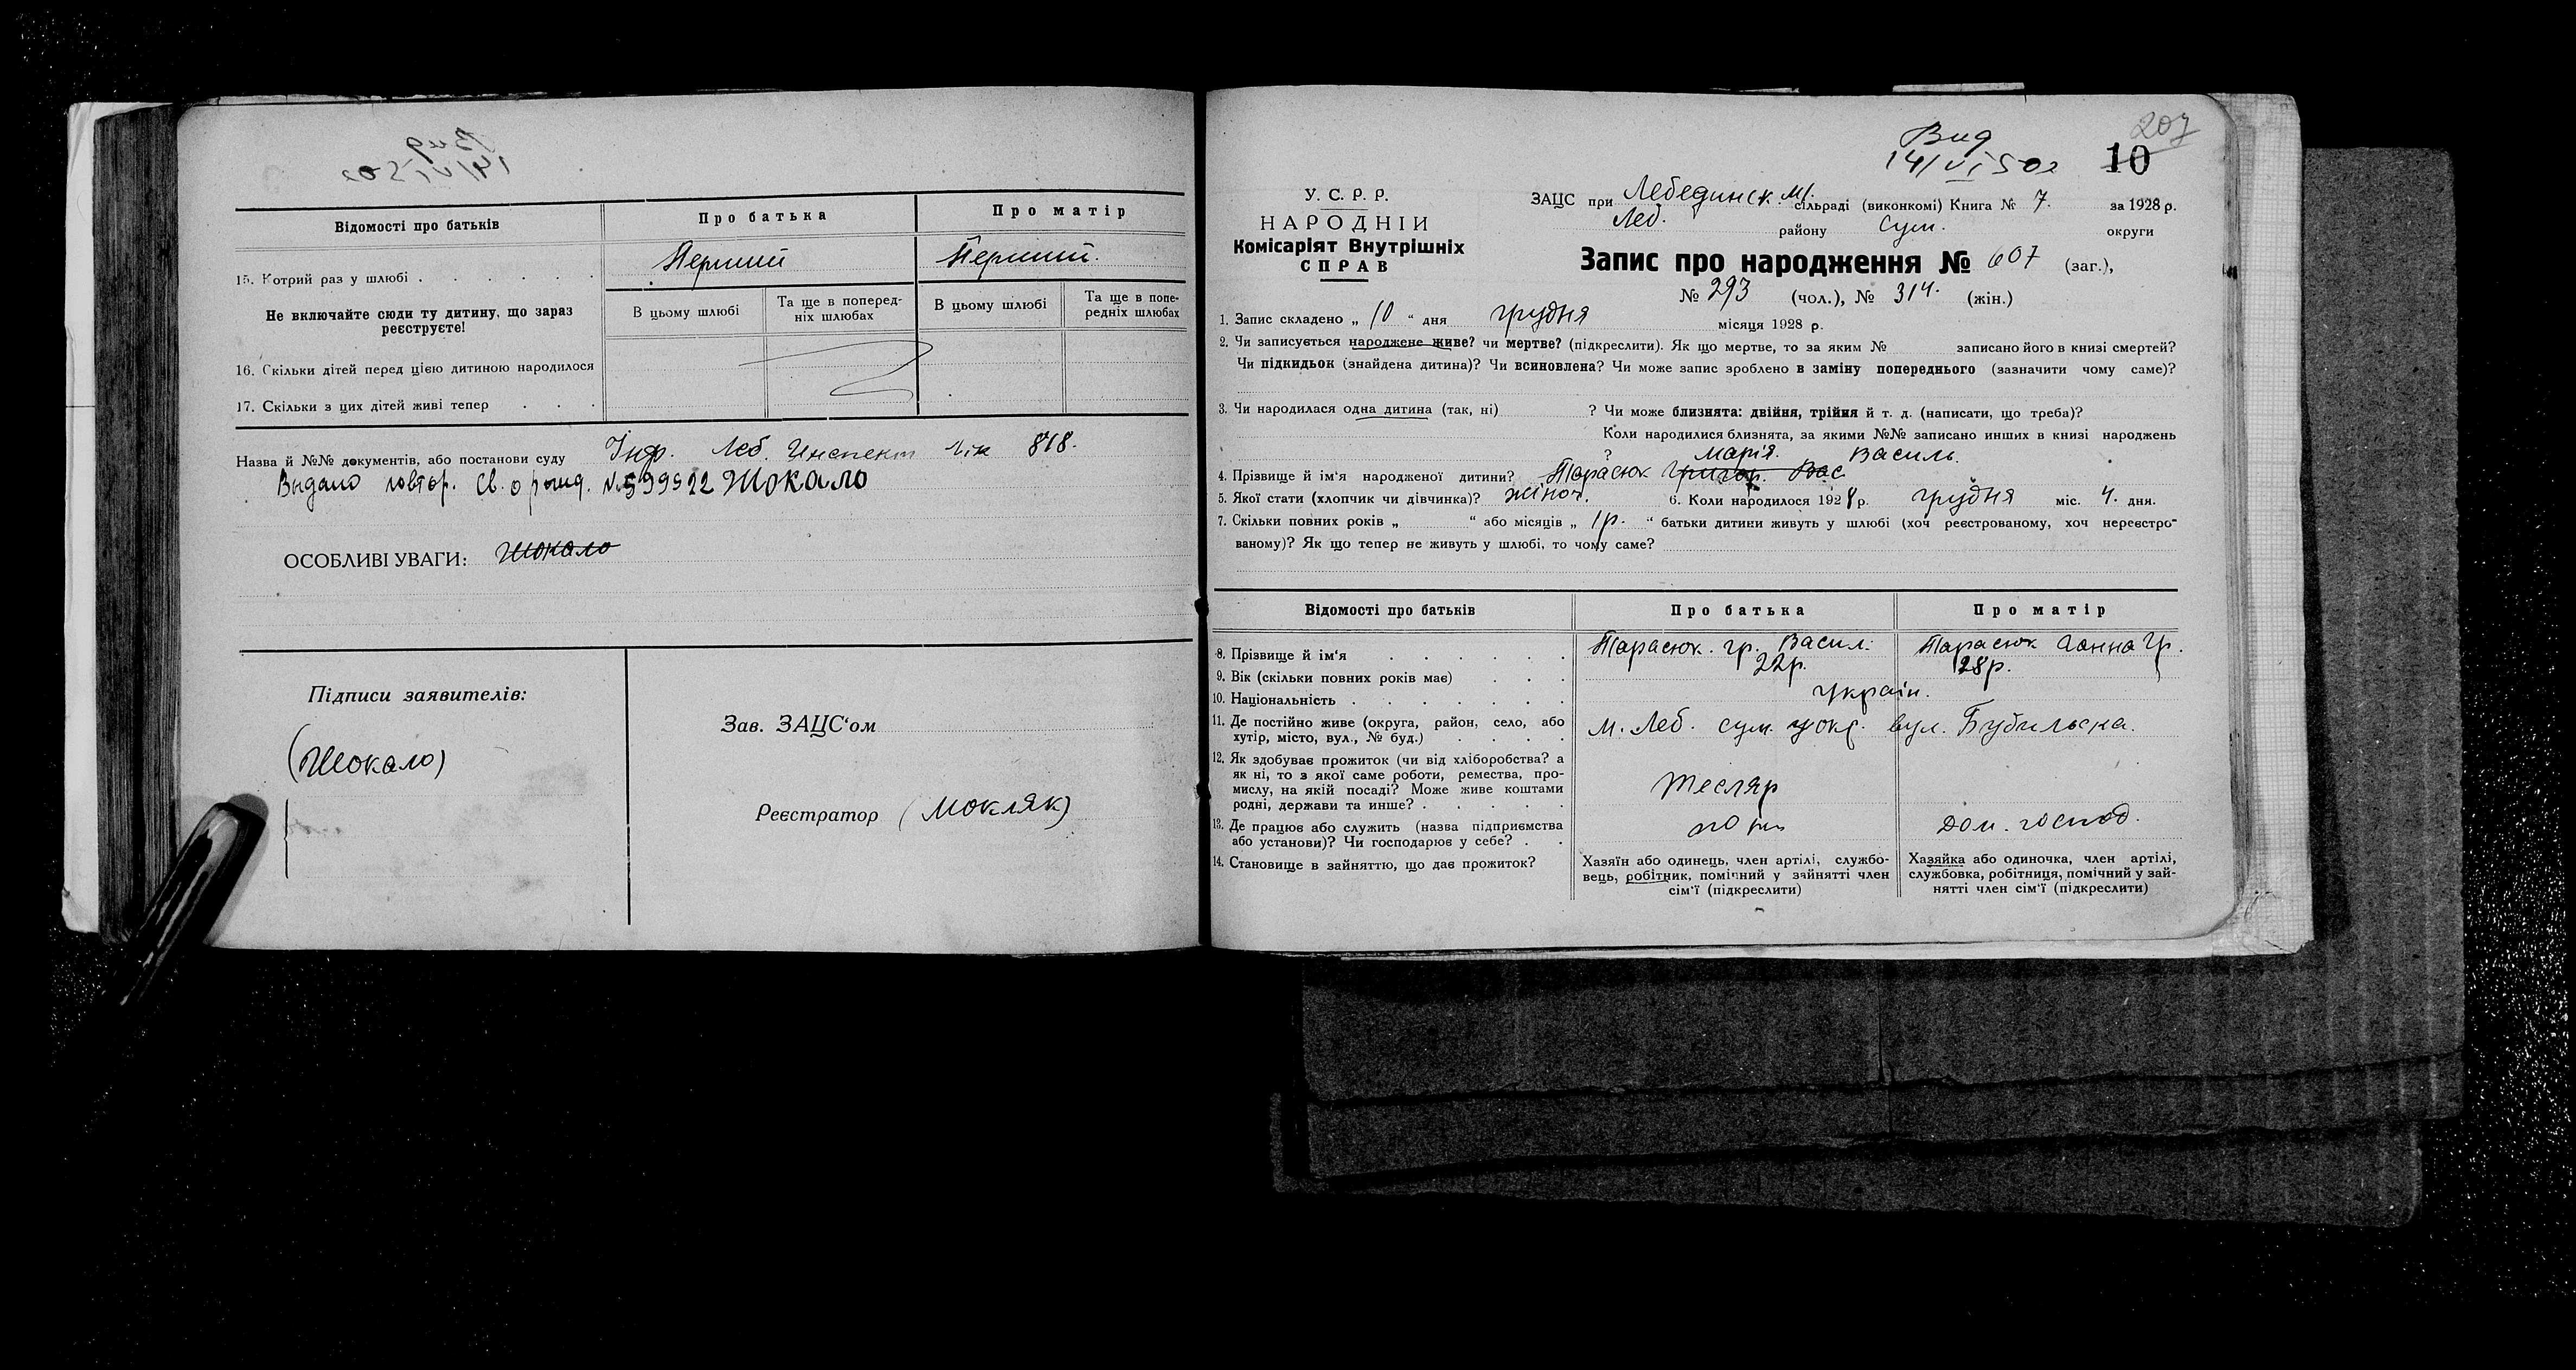 Відомості про батьків
Про батька
Про матір
15. Котрий раз у шлюбі
Перший
Перший.
Не включайте сюди ту дитину, що зараз
реєструєте!
В цьому шлюбі
Та ще в поперед-
ніх шлюбах
В цьому шлюбі
Та ще в попе-
редніх шлюбах
16. Скільки дітей перед цією дитиною народилося
17. Скільки з цих дітей живі тепер
Назва й №№ документів, або постанови суду Інф. Леб. Инспект 818.
Выдано повтор. св. о рожд. № 599522 Шокало
ОСОБЛИВІ УВАГИ: Шокало
Підписи заявителів:
(Шокало)
Зав. ЗАЦС‘ом
Реєстратор (Мокляк)
207
Вид
14/VI 50г
10
У. С. Р. Р.
НАРОДНІЙ
Комісаріят Внутрішніх
СПРАВ
ЗАЦС при Лебединск. М. сільраді (виконкомі) Книга № 7. за 1928 р.
Леб. району Сум. округи
Запис про народження № 607 (заг.),
№ 293 (чол.), № 314. (жін.)
1. Запис складено „ 10 “ дня грудня місяця 1928 р.
2. Чи записується народжене живе? чи мертве? (підкреслити). Як що мертве, то за яким № записано його в книзі смертей?
Чи підкидьок (знайдена дитина)? Чи всиновлена? Чи може запис зроблено в заміну попереднього (зазначити чому саме)?
3. Чи народилася одна дитина (так, ні) ? Чи може близнята: двійня, трійня й т. д. (написати, що треба)?
Коли народилися близнята, за якими №№ записано инших в книзі народжень
? Марія. Василь.
4. Прізвище й ім‘я народженої дитини? Тарасюк Григор. Вас
5. Якої стати (хлопчик чи дівчинка)? жіноч. 6. Коли народилося 1928 р. грудня міс. 4. дня.
7. Скільки повних років „ “ або місяців „ 1р. “ батьки дитини живуть у шлюбі (хоч реєстрованому, хоч нереєстро-
ваному)? Як що тепер не живуть у шлюбі, то чому саме?
Відомості про батьків
Про батька
Про матір
8. Прізвище й ім‘я
Тарасюк. гр. Васил.
Тарасюк Ганна Гр.
9. Вік (скільки повних років має)
22р.
28р.
10. Національність
україн.
11. Де постійно живе (округа, район, село, або
хутір, місто, вул., № буд.)
м. Леб. сум. окр. вул. Бубильска.
12. Як здобуває прожиток (чи від хліборобства? а
як ні, то з якої саме роботи, ремества, про-
мислу, на якій посаді? Може живе коштами
родні, держави та инше?
тесляр
13. Де працює або служить (назва підприємства
або установи)? Чи господарює у себе?
дом. господ.
14. Становище в зайняттю, що дає прожиток?
Хазяїн або одинець, член артілі, службо-
вець, робітник, помічний у зайнятті член
сім‘ї (підкреслити)
Хазяйка або одиночка, член артілі,
службовка, робітниця, помічний у зай-
нятті член сім‘ї (підкреслити)